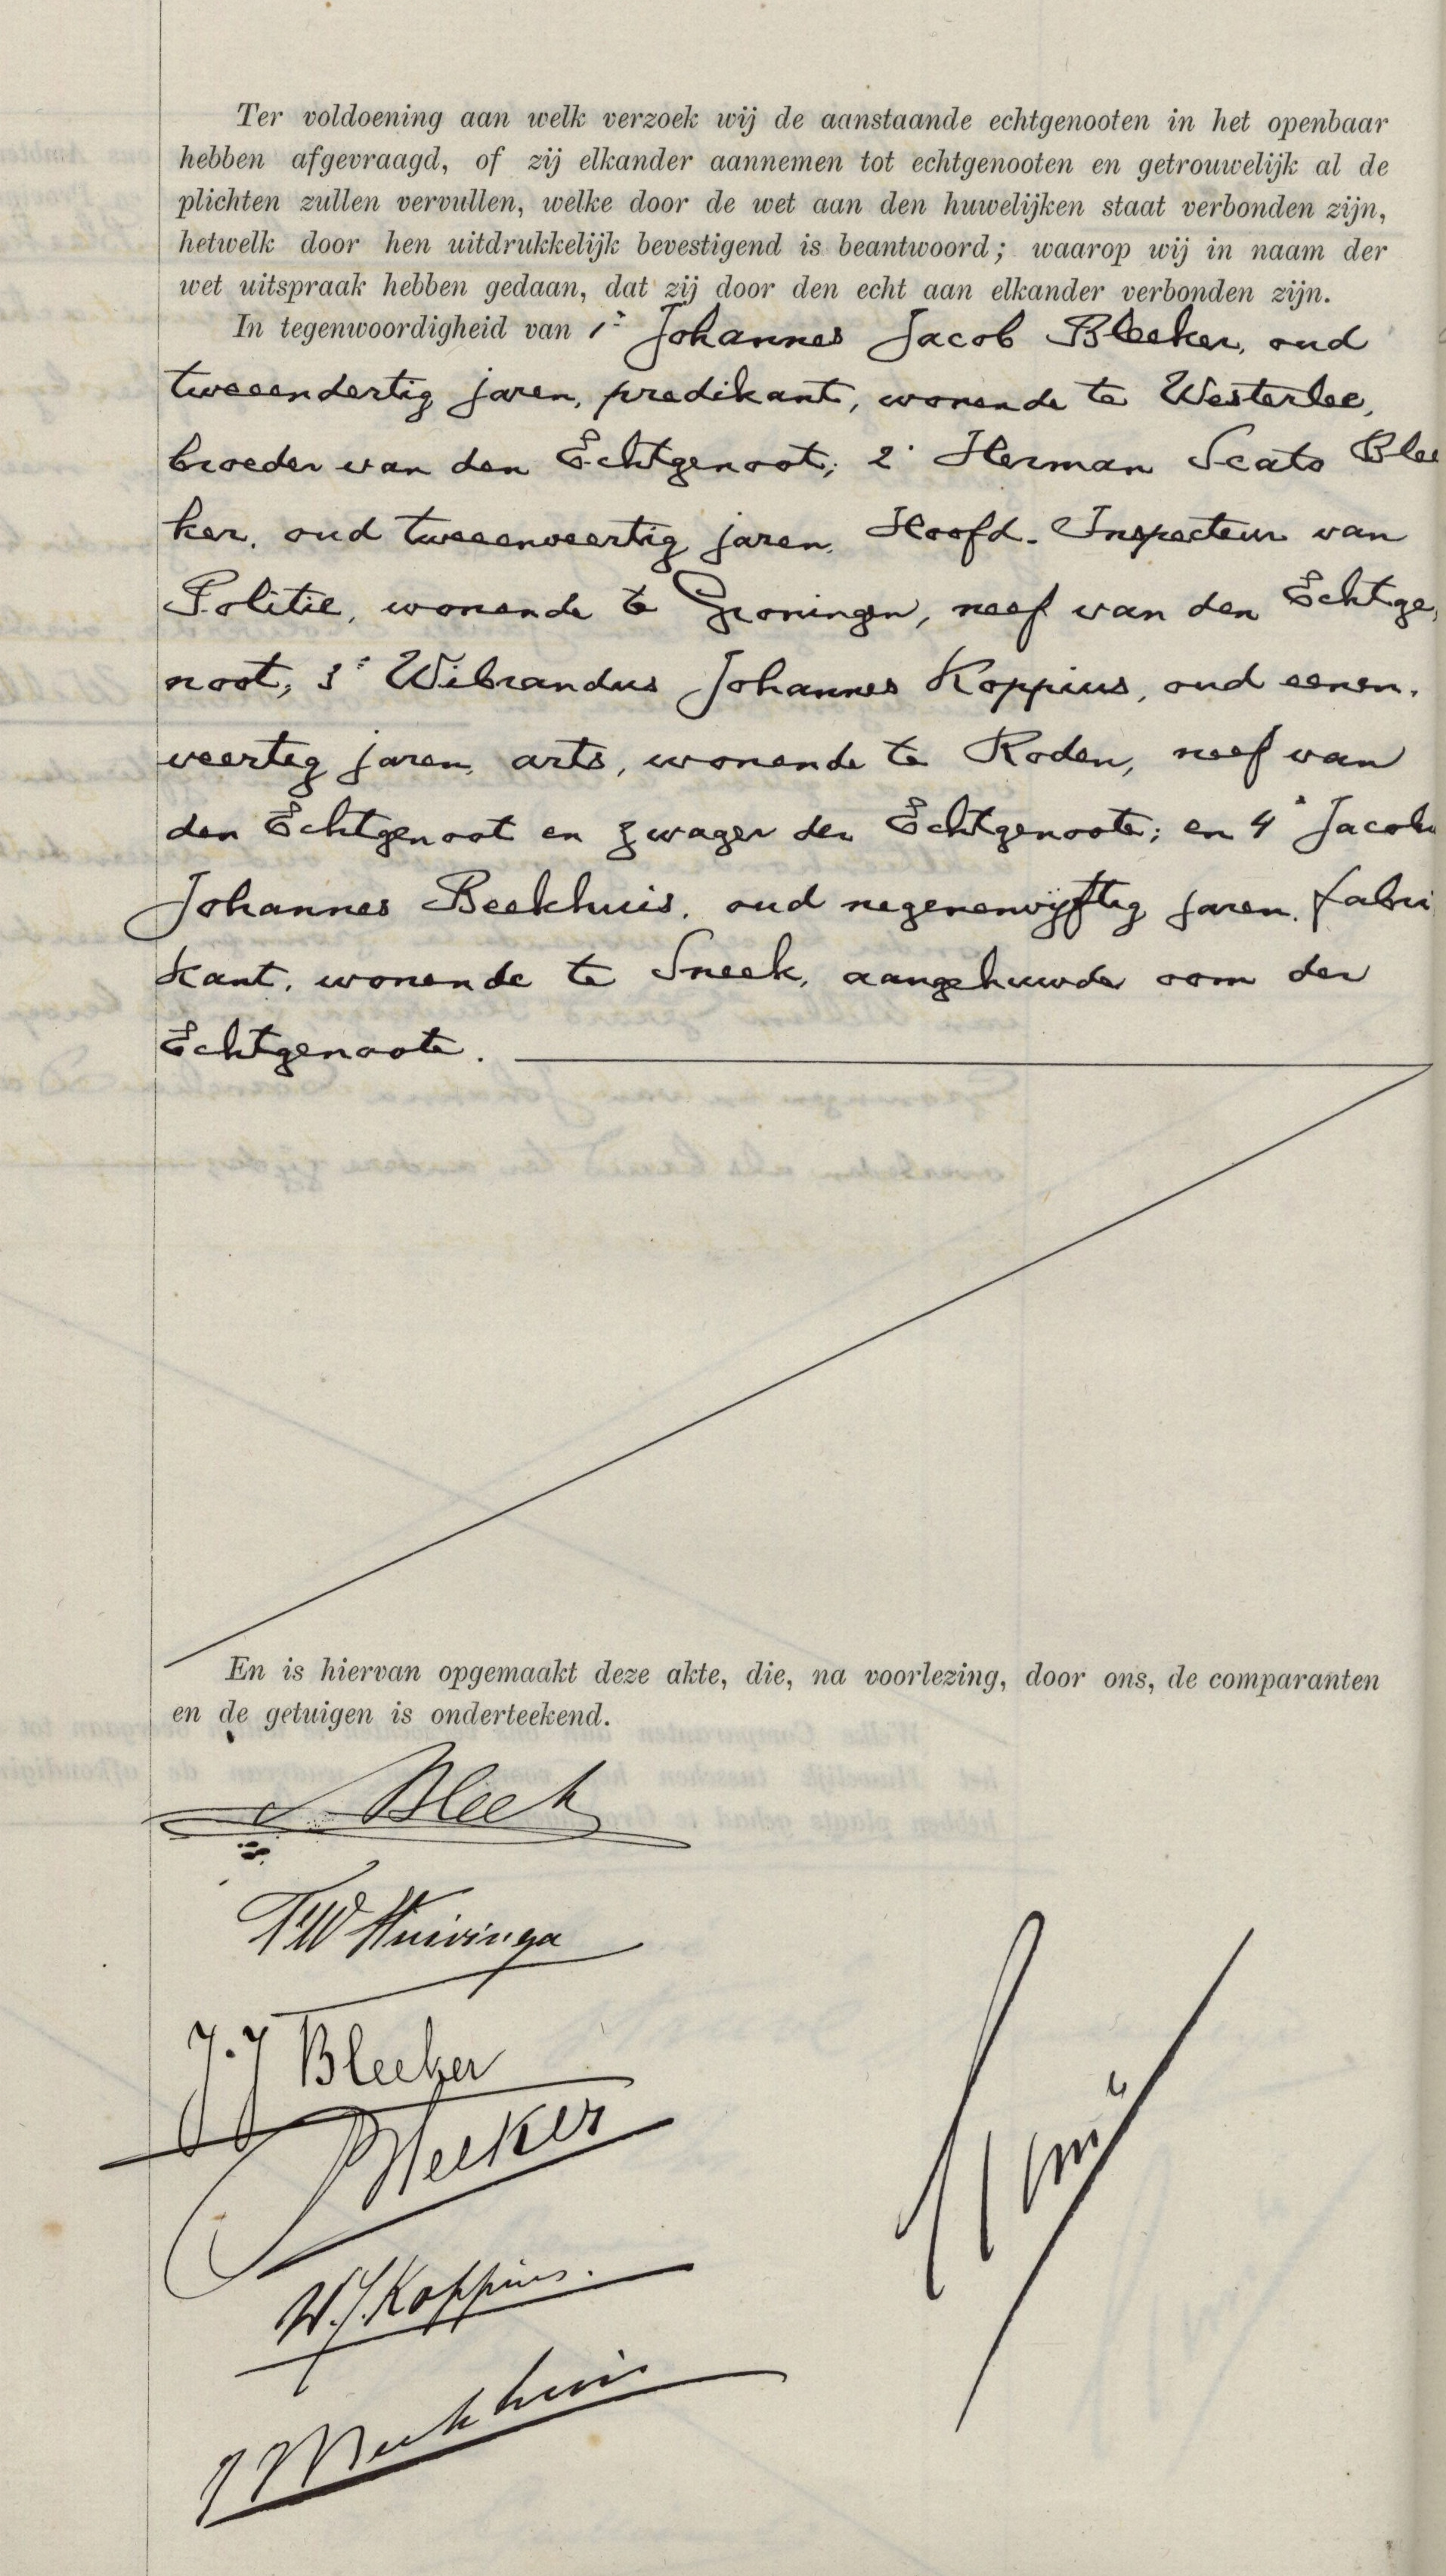 Ter voldoening aan welk verzoek wij de aanstaande echtgenooten in het openbaar
hebben afgevraagd, of zij elkander aannemen tot echtgenooten en getrouwelijk al de
plichten zullen vervullen, welke door de wet aan den huwelijken staat verbonden zijn,
hetwelk door hen uitdrukkelijk bevestigend is beantwoord; waarop wij in naam der
wet uitspraak hebben gedaan, dat zij door den echt aan elkander verbonden zijn.
In tegenwoordigheid van 1° Johannes Jacob Bleeker, oud
tweeendertig jaren, predikant, wonende te Westerlee,
broeder van den Echtgenoot; 2° Herman Scato Blee
ker, oud tweeenveertig jaren, Hoofd-Inspecteur van
Politie, wonende te Groningen, neef van den Echtge,
noot; 3° Wibrandus Johannes Koppius, oud eenen-
veertig jaren, arts, wonende te Roden, neef van
den Echtgenoot en zwager der Echtgenoote; en 4° Jacob
Johannes Beekhuis, oud negenenvijftig jaren, fabri
kant, wonende te Sneek, aangehuwde oom der
Echtgenoote.
En is hiervan opgemaakt deze akte, die, na voorlezing, door ons, de comparanten
en de getuigen is onderteekend.
T W Huivinga
J. J Bleeker
Bleeker
W. J. Koppius.